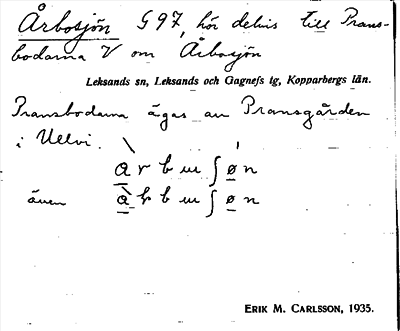 Årbosjön G97, hör delvis till Prans-
bodarna V om Årbosjön
Leksands sn, Leksands och Gagnefs tg, Kopparbergs län.
Pransbodarna ägas av Pransgården
i Ullvi.
a r b ω ʃ ø n
även a r b ω ʃ ø n
ERIK M. CARLSSON, 1935.